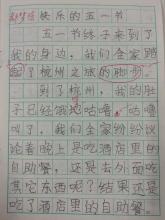 快乐的五一节
五一节终于来到了
我的身边，我们全家踏
了杭州之旅的脚步。
到了杭州，我的肚
子已经饿地咕噜咕噜
叫了，我们全家纷纷议
论着晚上是吃酒店里的
自助餐，还是去外面吃
其它东西呢？结果还是
吃了酒店里的自助餐。